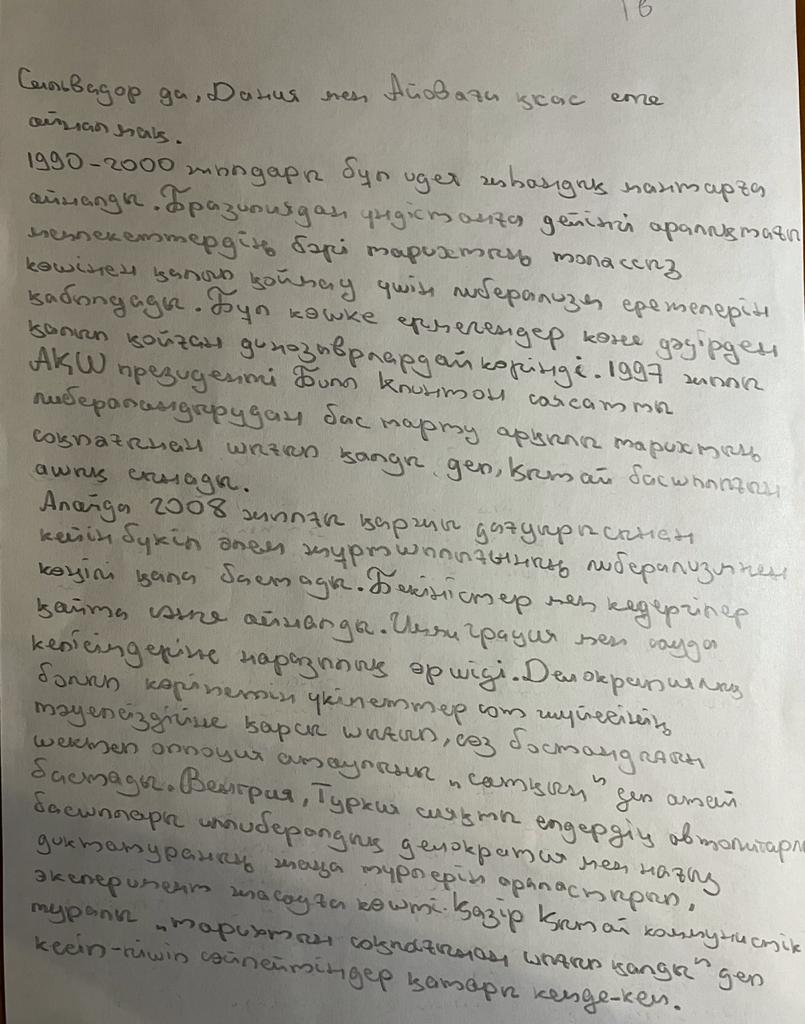 16
Сальвадор да, Дания мен Айовати ұқсас елге
айналмақ.
1990-2000 жылдары бұл идея жаһандық мантараға
айналды. Бразилиядан Үндістанға дейінгі аралықтағы
мемлекеттердің бәрі тарихтың толассыз
көшінен қалып қоймау үшін либерализм ережелерін
қабылдады. Бұл көшке ермегендер көне дәуірден
қалып қойған динозаврлардай көрінді. 1997 жылы
АҚШ президенті Билл Клинтон саясатты
либералдандырудан бас тарту арқылы тарихтың
соқпағынан шығып қалды деп, Қытай басшылығын
ашық сынады.
Алайда 2008 жылғы қаржы дағдарысынан
кейін бүкіл әлем жұртшылығының либерализмнен
көңілі қала бастады. Бекіністер мен кедергілер
қайта сәнге айналды. Иммиграция мен сауда
келісіндеріне наразылық өршіді. Демократиялық
болып көрінетін үкіметтер сот жүйесінің
тәуелсіздігіне қарсы шығып, сөз бостандығын
шектеп оппоция атаулының „сатқын" деп атай
бастады. Венгрия, Түркия сияқты елдердің автолитарлы
басшылары иллибералдық демократия мен нағыз
диктатураның жаңа түрлерін араластырып,
эксперимент жасауға көшті. Қазір Қытай коммунистік
туралы „тарихтың соқпағынан шығып қалды" деп
кесіп-пішіп сөйлейтіндер қатары кемде-кем.